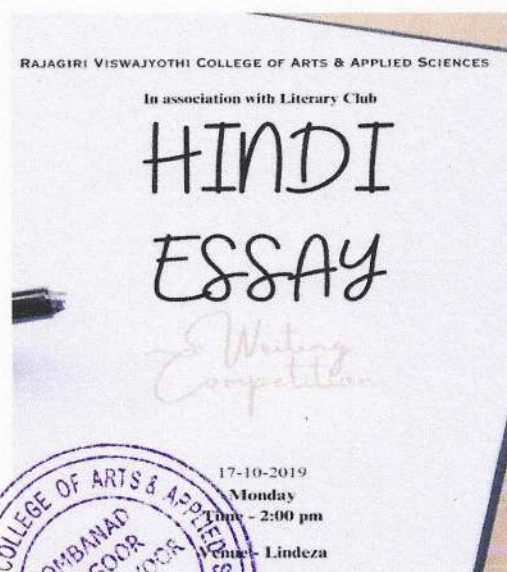 RAJAGIRI VISWAJYOTHI COLLEGE OF ARTS & APPLIED SCIENCES
In association with Literary Club
HINDI
ESSAY
Writing
Competition
17-10-2019
Monday
Time - 2:00 pm
Venue - Lindeza
COLLEGE OF ARTS & APPLIED S
OMBANAD
GOOR
OOR